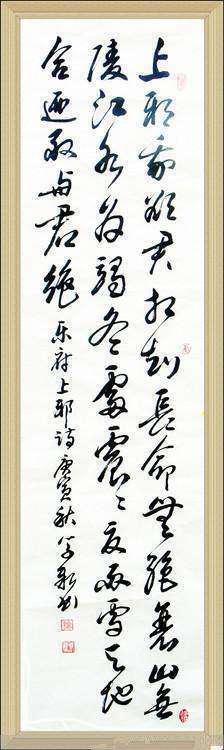 上邪我欲君相知長命無絕衰山無
陵江水為竭冬雷震〻夏雨雪天地
合迺敢與君絕 乐府上邪詩庚寅秋